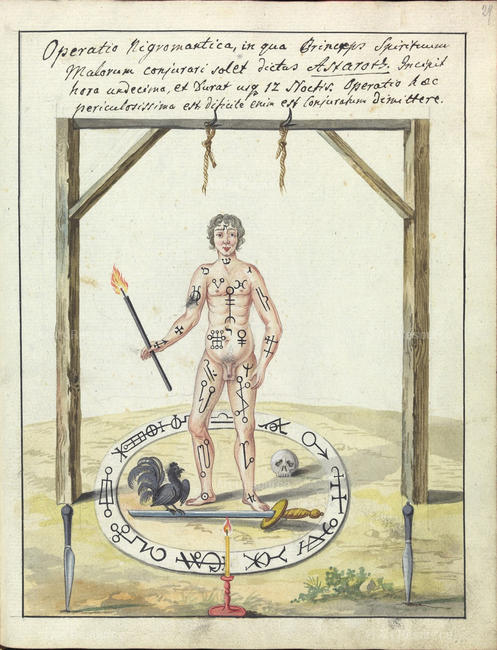 Operatio Nigromantica, in qua Princeps Spirituum
Malorum conjurari solet dictus Astaroth. Incipit
hora undecima, et Durat usq 12 Noctis. Operatio hæc
periculosissima est dificile enim est Conjuratum dimittere.